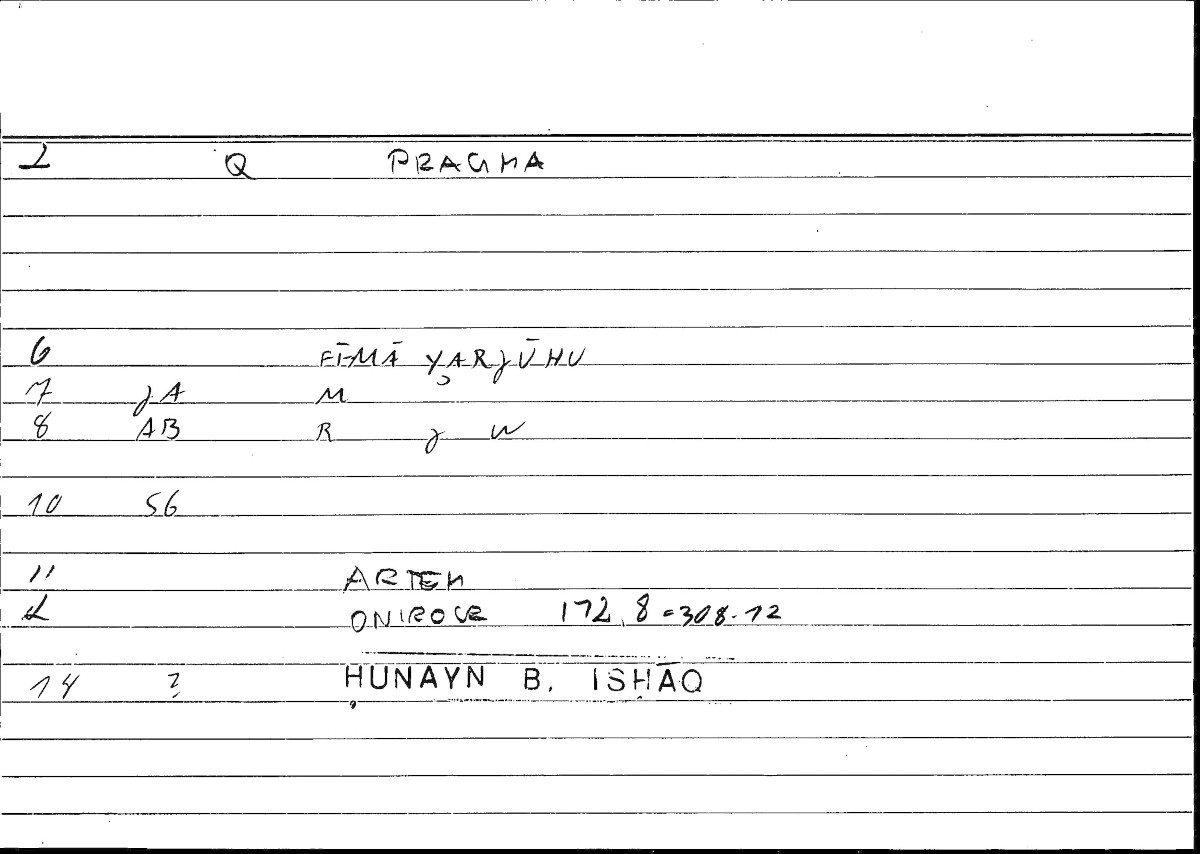 1 Q PRAGMA
6 FĪMĀ YARJŪHU
7 JA M
8 AB R J W
10 56
11 ARTEM
2 ONIROCR 172,8=308.12
14 ? ḤUNAYN B. ISḤĀQ